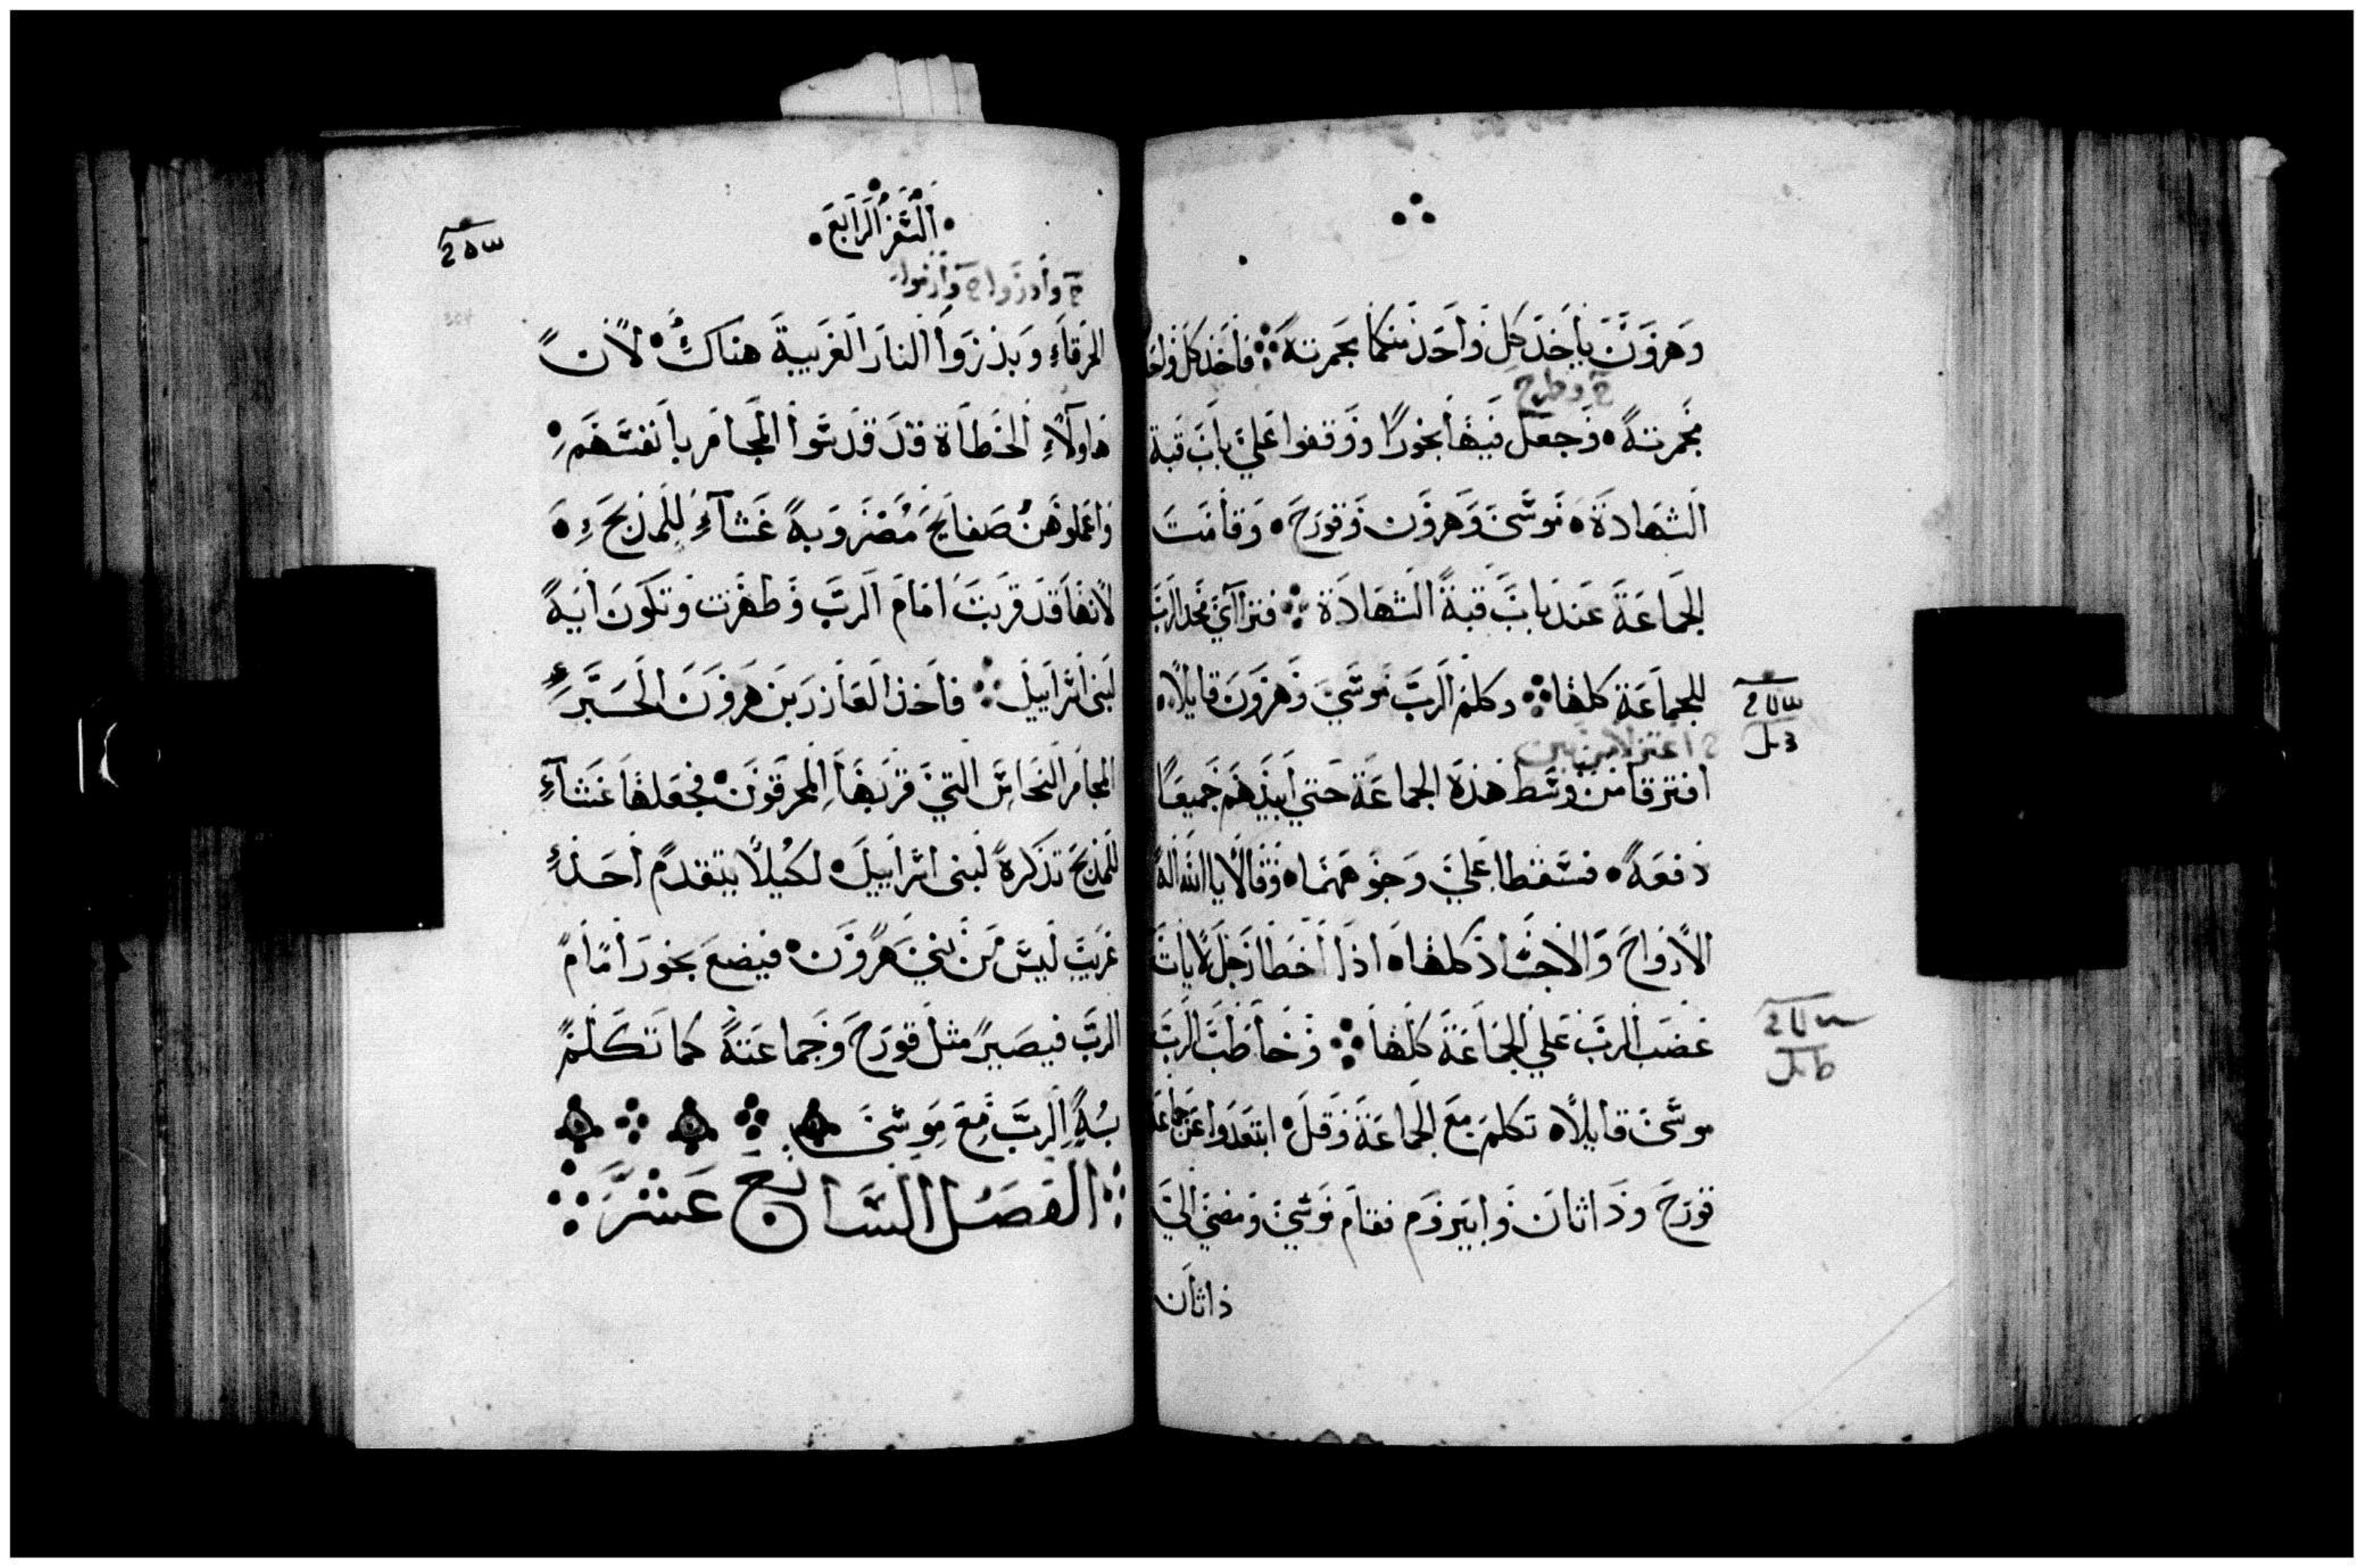 وهرون ياخذ كل واحد منكما مجمرته فاخذ كل واحد
مجمرته وجعل فيها بخورًا ووقفوا على باب قبة
الشهادة موسى وهرون وقورح وقامت
الجماعة عند باب قبة الشهادة فتراآى مجد الرب
للجماعة كلها وكلم الرب موسى وهرون قايلًا
افترقا من وسط هذه الجماعة حتى ابيدهم جميعًا
دفعة فسقطا على وجوههما وقالا يا الله اله
الارواح والاجساد كلها اذا اخطا رجل لا يات
غضب الرب على الجماعة كلها وخاطب الرب
موسى قايلًا تكلم مع الجماعة وقل ابتعدوا عن جماعة
قورح وداثان وابيروم فقام موسى ومضى الى
داثان
السفر الرابع
الحرقاء وبذروا النار الغريبة هناك لان
هاولاء الخطاة قد قدسوا المجامر بانفسهم
واعملوهن صفايح مضروبة غشاء للمذبح
لانها قد قربت امام الرب وطهرت وتكون اية
لبنى اسراييل فاخذ العازر بن هرون الحبر
المجامر النحاس التي قربها المحرقون فجعلها غشاء
للمذبح تذكرة لبنى اسراييل لكيلا يتقدم احد
غريب ليس من بني هرون فيضع بخور امام
الرب فيصير مثل قورح وجماعته كما تكلم
به الرب مع موسى
الفصل السابع عشر